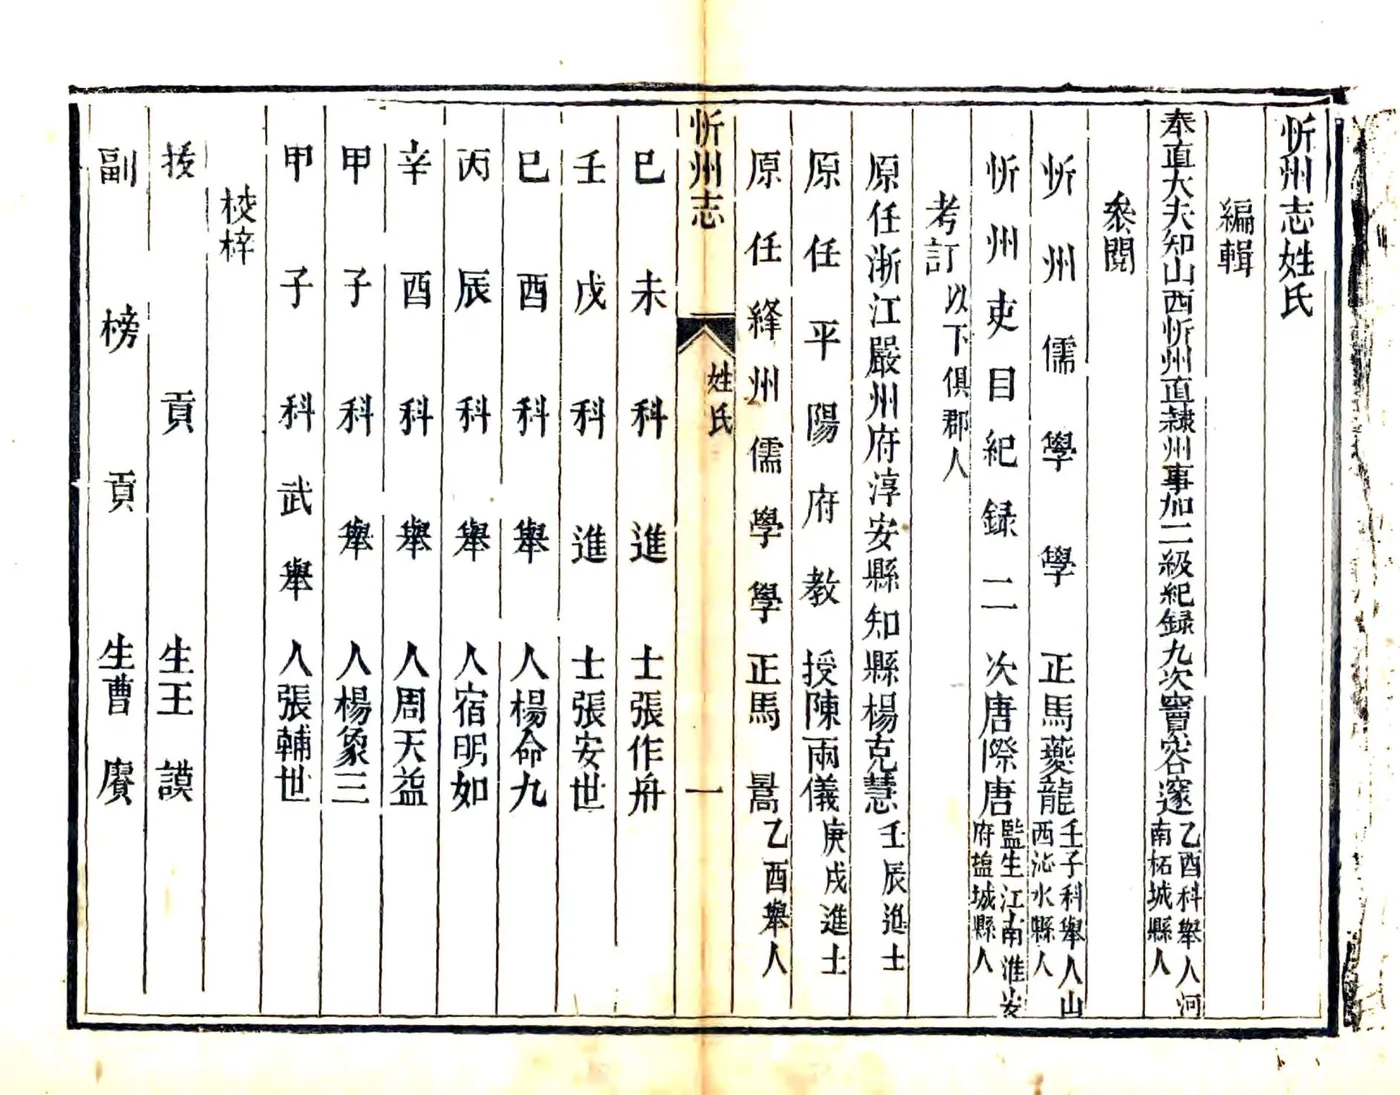 忻州志姓氏
編輯
奉直大夫知山西忻州直隸州事加二級紀録九次竇容邃乙酉科舉人河南柘城縣人
叅閱
忻州儒學學正馬夔龍壬子科舉人山西沁水縣人
忻州吏目紀録二次唐際唐監生江南淮安府塩城縣人
考訂以下俱郡人
原任浙江嚴州府淳安縣知縣楊克慧壬辰進士
原任平陽府教授陳兩儀庚戌進士
原任絳州儒學學正馬暠乙酉舉人
忻州志 姓氏 一
巳未科進士張作舟
壬戌科進士張安世
巳酉科舉人楊命九
丙辰科舉人宿明如
辛酉科舉人周天益
甲子科舉人楊象三
甲子科武舉人張輔世
校梓
拔貢生王謨
副榜貢生曹賡